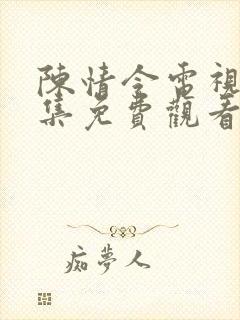 陳情令電視
集免費觀看
痴夢人